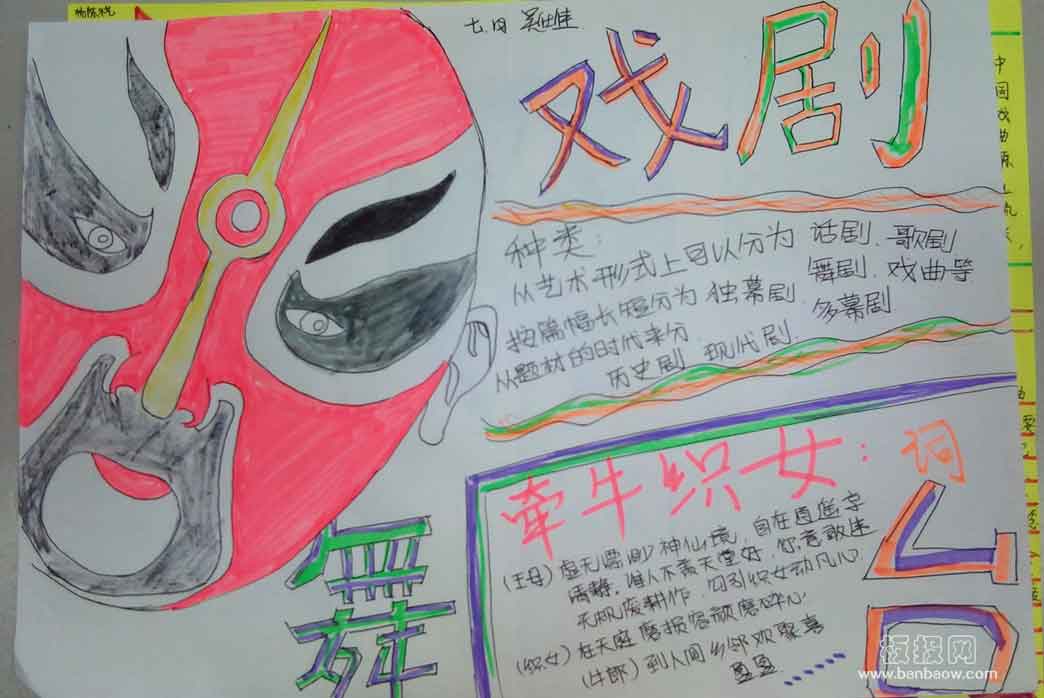 七.15
戏剧
种类:
从艺术形式上可以分为 话剧、歌剧
舞剧、戏曲等
按篇幅长短分为 独幕剧、多幕剧
从题材的时代来分
历史剧、现代剧
牵牛织女:词
(王母)虚无缥缈神仙境,自在逍遥享
清静,谁人不羡天堂好,你竟敢迷
无帆废耕作,勾引织女动凡心
(织女)在天庭磨损容颜磨碎心
(牛郎)到人间乡邻欢聚喜
舞
台
中国戏曲源
板报网
www.benbaow.com